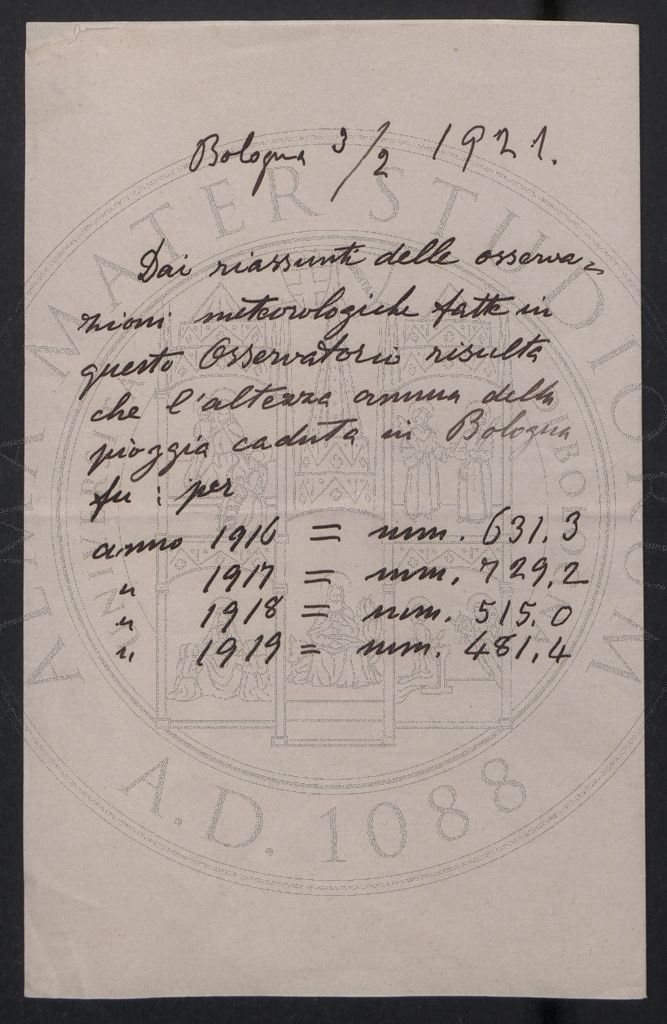 Bologna 3/2 1921.
Dai riassunti delle osserva=
zioni meteorologiche fatte in
questo Osservatorio risulta
che l'altezza annua della
pioggia caduta in Bologna
fu : per
anno 1916 = mm. 631.3
" 1917 = mm. 729.2
" 1918 = mm. 515.0
" 1919 = mm. 481.4
ALMA MATER STUDIORUM
A.D. 1088